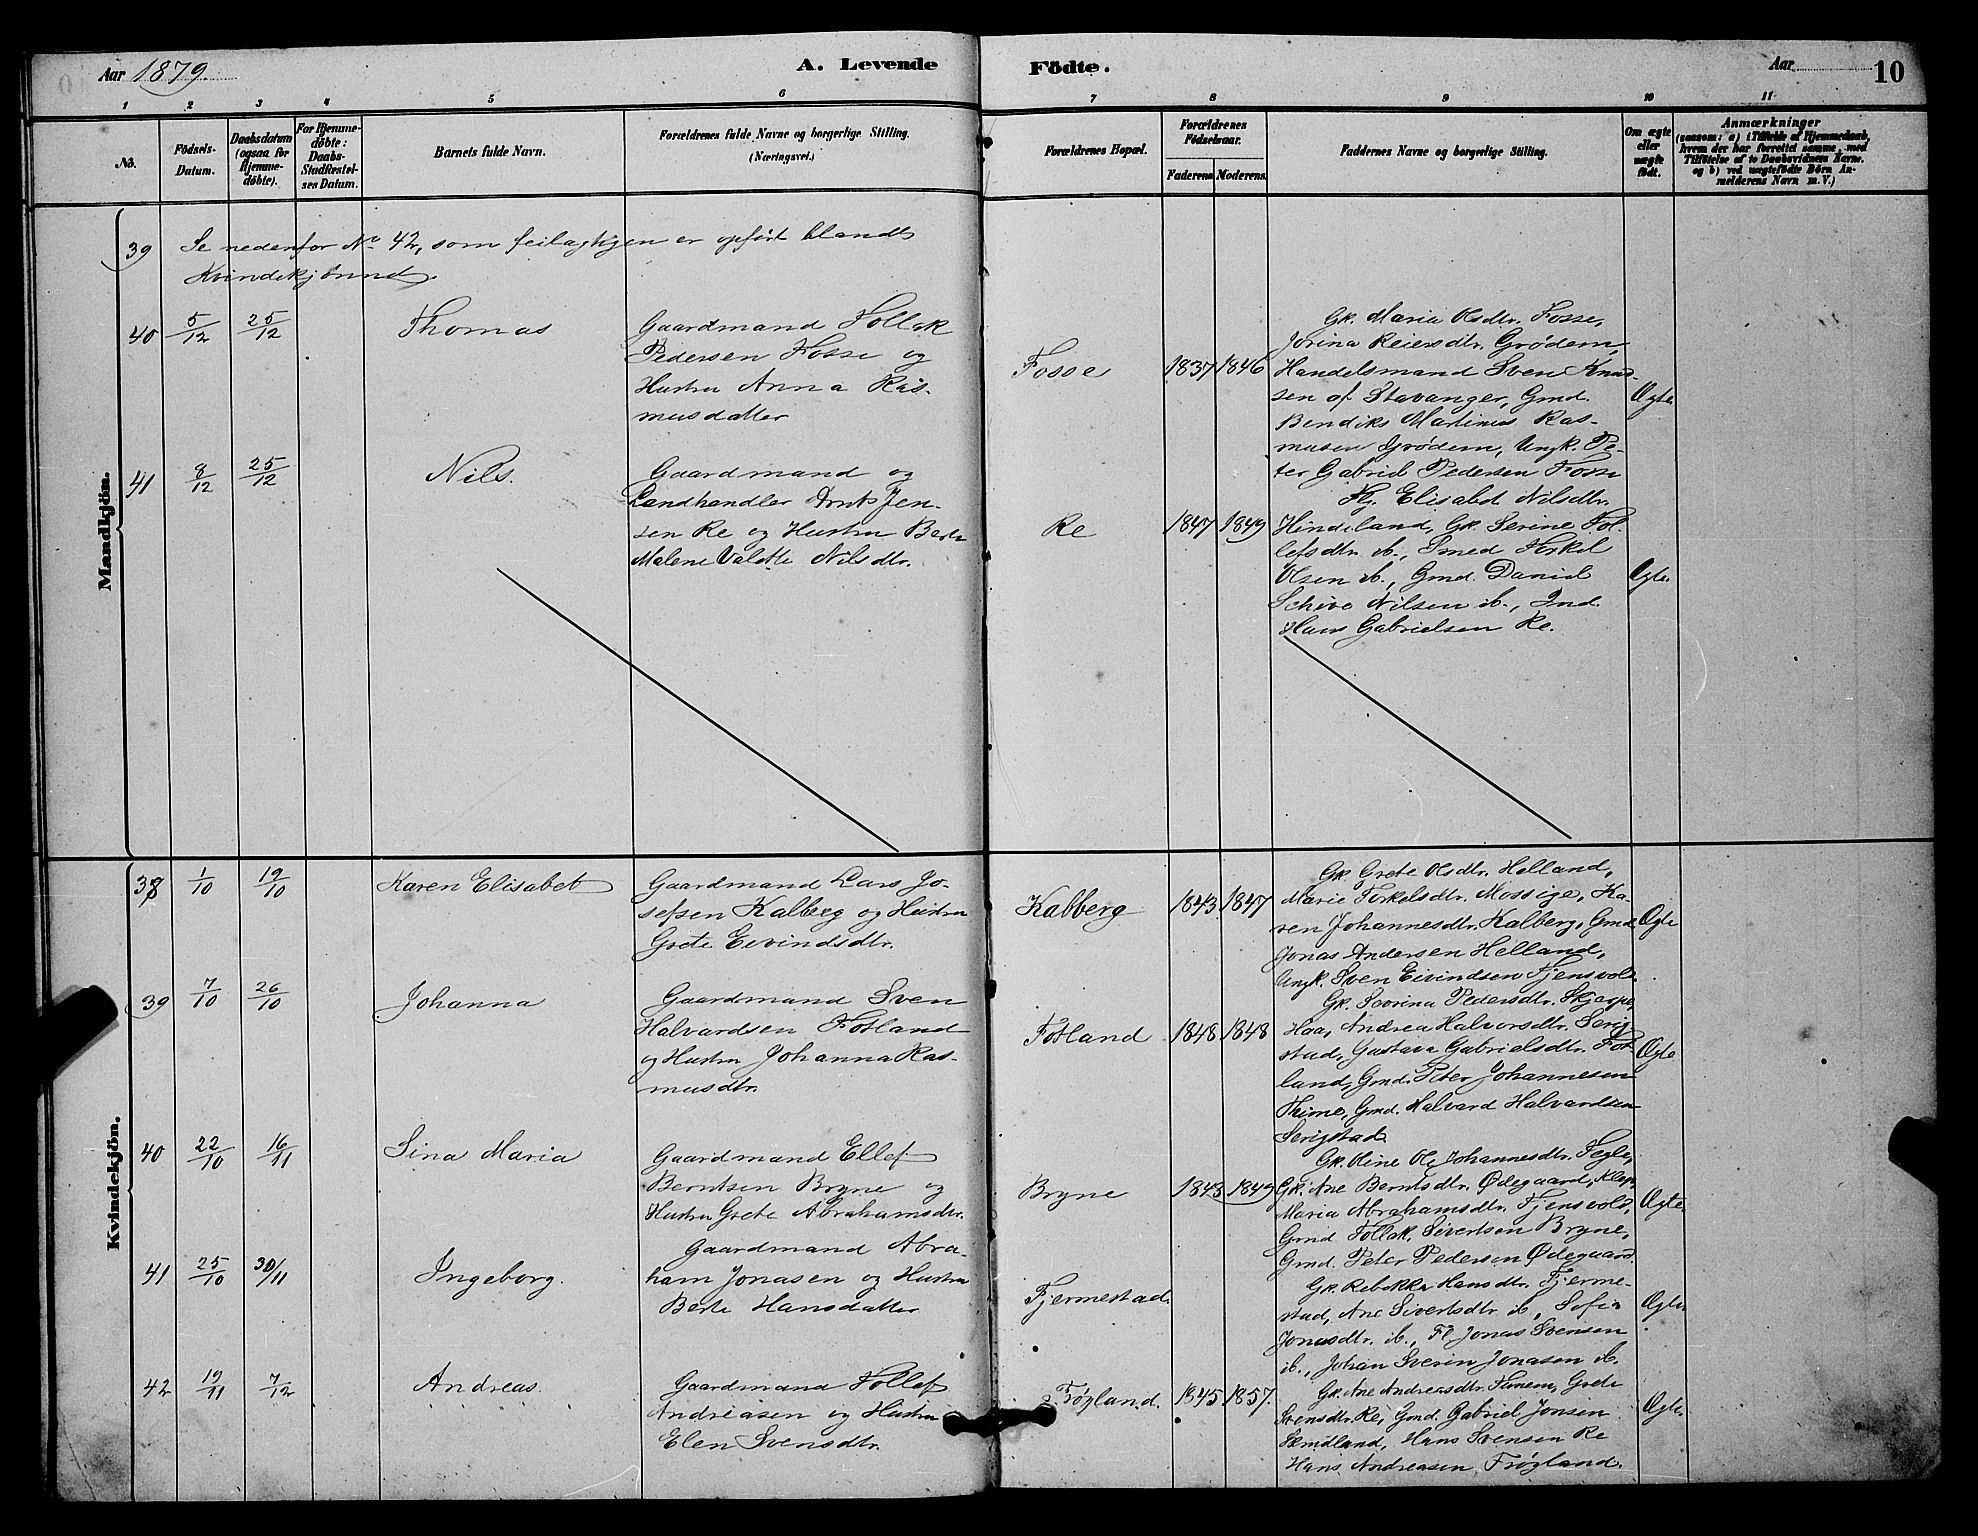 Aar 1879.
A. Levende Födte.
Aar
10
1 2 3 4 5 6 7 8 9 10 11
No.
Födsels-Datum.
Daabsdatum (ogsaa for Hjemme-döbte).
For Hjemme-döbte: Daabs-Stadfæstel-ses Datum.
Barnets fulde Navn.
Forældrenes fulde Navne og borgerlige Stilling.
(Næringsvei.)
Forældrenes Bopæl.
Forældrenes Födselsaar.
Faderens Moderens.
Faddernes Navne og borgerlige Stilling.
Om ægte eller uægte födt.
Anmærkninger
(saasom: a) i Tilfælde af Hjemmedaab,
hvem der har forrettet samme, med
Tilföielse af to Daabsvidners Navne.
og b) ved uægtefödte Börn An-
melderens Navn m. V.)
Mandkjön.
39 Se nedenfor No 42, som feilagtigen er opført blandt
Kvindekjønnet.
40 5/12 25/12 Thomas
Gaardmand Tollak
Pedersen Fosse og
Hustru Anna Ras-
musdatter
Fosse 1837 1846
Gk. Maria Olsdtr. Fosse,
Jorina Reiersdtr. Grødem,
Handelsmand Sven Knud-
sen af Stavanger, Gmd.
Bendiks Martinus Ras-
musen Grødem, Ungk. Pe-
ter Gabriel Pedersen Fosse
Ægte
41 8/12 25/12 Nils.
Gaardmand og
Landhandler Arnt Jen-
sen Re og Hustru Berte
Malene Valette Nilsdtr.
Re 1847 1849
Pg. Elisabet Nilsdtr.
Hindeland, Gk. Serine Tol-
lefsdtr. ib., Smed Torkel
Olsen ib., Gmd. Daniel
Schive Nilsen ib., Ind.
Hans Gabrielsen Re.
Ægte
Kvindekjön.
38 1/10 19/10 Karen Elisabet
Gaardmand Lars Jo-
sefsen Kalberg og Hustru
Grete Eivindsdtr.
Kalberg 1843 1847
Gk. Grete Olsdtr. Helland,
Marie Torkelsdtr. Mossige, Ka-
ren Johannesdtr. Kalberg, Gmd.
Jonas Andersen Helland,
Ungk. Sven Eivindsen Tjensvold.
Ægte
39 7/10 26/10 Johanna
Gaardmand Sven
Halvardsen Fotland
og Hustru Johanna Ras-
musdtr.
Fotland 1848 1848
Gk. Severina Pedersdtr. Skjerpe,
Haa, Andrea Halvorsdtr. Serig-
stad, Gustava Gabrielsdtr. Fot-
land, Gmd. Peter Johannesen
Thime, Gmd. Halvard Halvardsen
Serigstad
Ægte
40 22/10 16/11 Sina Maria
Gaardmand Ellef
Berntsen Bryne og
Hustru Grete Abrahamsdtr.
Bryne 1843 1849
Gk. Oline Ols Johannesdtr. Tegle,
Gk. Ane Berntsdtr. Ødegaard, Klep,
Maria Abrahamsdtr. Tjensvold,
Gmd Tollak Sivertsen Bryne,
Gmd. Peter Pedersen Ødegaard.
Ægte.
41 25/10 30/11 Ingeborg.
Gaardmand Abra-
ham Jonasen og Hustru
Berte Hansdatter
Fjermestad.
Gk. Rebekka Hansdtr. Fjerme-
stad, Ane Sivertsdtr. ib., Sofia
Jonasdtr. ib., Jonas Svensen
ib., Johan Sverin Jonasen ib.
Ægte.
42 19/11 7/12 Andreas.
Gaardmand Tollef
Andreasen og Hustru
Elen Svensdtr.
Frøgland. 1845 1857.
Gk. Ane Andreasdtr. Grete
Svensdtr. Re, Gmd. Gabriel Jonsen
Semdland, Hans Svensen Re
Hans Andreasen Frøgland.
Ægte.